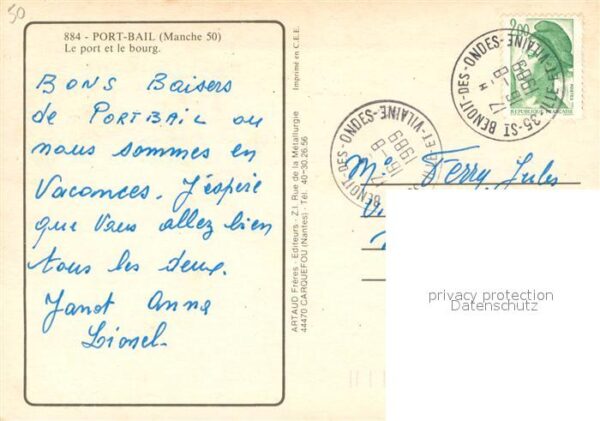 50
884 - PORT-BAIL (Manche 50)
Le port et le bourg.
BONS Baisers
de PORTBAIL ou
nous sommes en
Vacances. J'espère
que Vous allez bien
tous les deux.
Janot Anna
Lionel.
Imprimé en C.E.E.
ARTAUD Frères - Editeurs - Z.I. Rue de la Métallurgie
44470 CARQUEFOU (Nantes) - Tél. 40-30.26.56
2,00
REPUBLIQUE FRANÇAISE
POSTES
35-ST BENOIT-DES-ONDES-ILLE-ET-VILAINE
17 H
1989
BENOIT-DES-ONDES- ET-VILAINE
1989
Mr Ferry Jules
privacy protection
Datenschutz